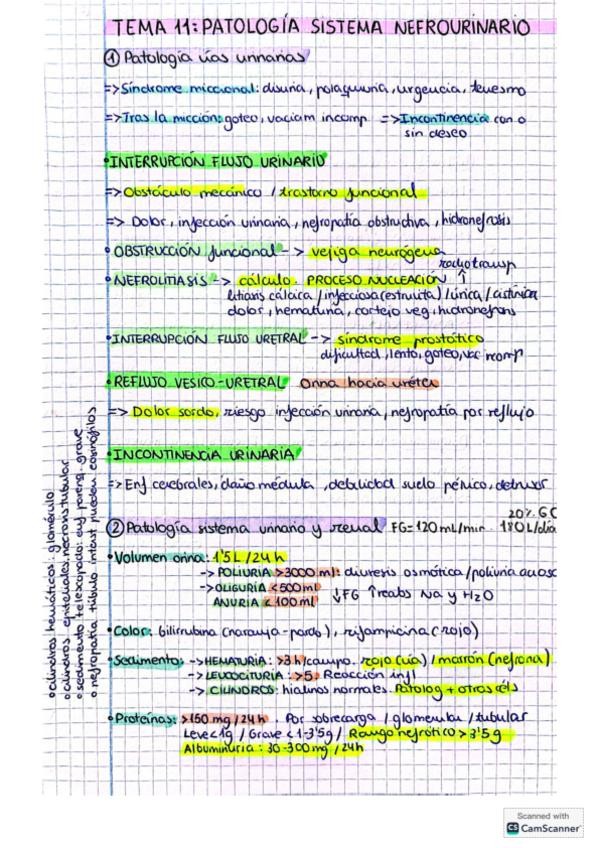 TEMA 11: PATOLOGÍA SISTEMA NEFROURINARIO
① Patología vías urinarias
=> Síndrome miccional: disuria, polaquiuria, urgencia, tenesmo
=> Tras la micción: goteo, vaciam incomp => Incontinencia con o
sin deseo
• INTERRUPCIÓN FLUJO URINARIO
=> Obstáculo mecánico / trastorno funcional
=> Dolor, infección urinaria, nefropatía obstructiva, hidronefrosis
• OBSTRUCCIÓN funcional -> vejiga neurógena
radiotransp
• NEFROLITIASIS -> cálculo. PROCESO NUCLEACIÓN ↑
litiasis cálcica / infecciosa (estruvita) / úrica / cistínica
dolor, hematuria, cortejo veg, hidronefrosis
• INTERRUPCIÓN FLUJO URETRAL -> síndrome prostático
dificultad, lento, goteo, vac incomp
• REFLUJO VESICO-URETRAL Orina hacia uréter
=> Dolor sordo, riesgo infección urinaria, nefropatía por reflujo
• INCONTINENCIA URINARIA
=> Enf cerebrales, daño médula, debilidad suelo pélvico, detrusor
20% GC
② Patología sistema urinario y renal FG=120mL/min 180L/día
• Volumen orina: 1'5L/24h
-> POLIURIA >3000 ml: diuresis osmótica / poliuria acuosa
-> OLIGURIA <500ml
ANURIA <100ml ↓FG ↑reabs Na y H2O
• Color: bilirrubina (naranja-pardo), rifampicina (rojo)
• Sedimento: -> HEMATURIA: >3h/campo. rojo (vía) / marrón (nefrona)
-> LEUCOCITURIA: >5. Reacción infl
-> CILINDROS: hialinos normales. Patolog + otras céls
• Proteínas: >150 mg/24h. Por sobrecarga / glomerular / tubular
Leve <1g / Grave < 1-3'5g / Rango nefrótico > 3'5g
Albuminuria: 30-300mg/24h
o cilindros hemáticos: glomérulo
o cilindros epiteliales, necrosis tubular
o sedimento telescopado: enf parenq. grave
o nefropatía túbulo intest pueden eosinófilos
Scanned with
CS CamScanner